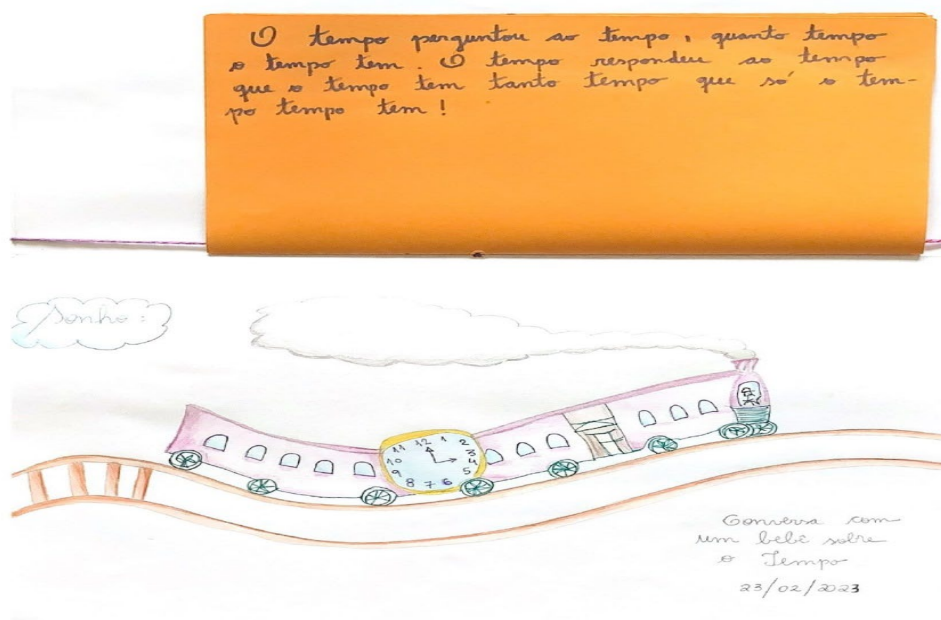 O tempo perguntou ao tempo, quanto tempo
o tempo tem. O tempo respondeu ao tempo
que o tempo tem tanto tempo que só o tem-
po tempo tem!
Sonho:
11 12 1 2
10 3
9 4
8 7 6 5
Conversa com
um bebê sobre
o Tempo
23/02/2023